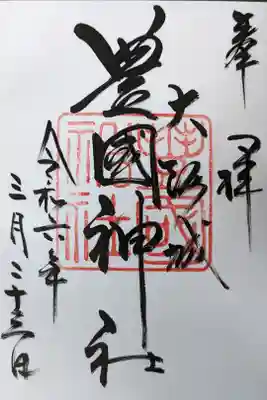 奉拝
大阪城
豊國神社
令和六年
三月二十三日